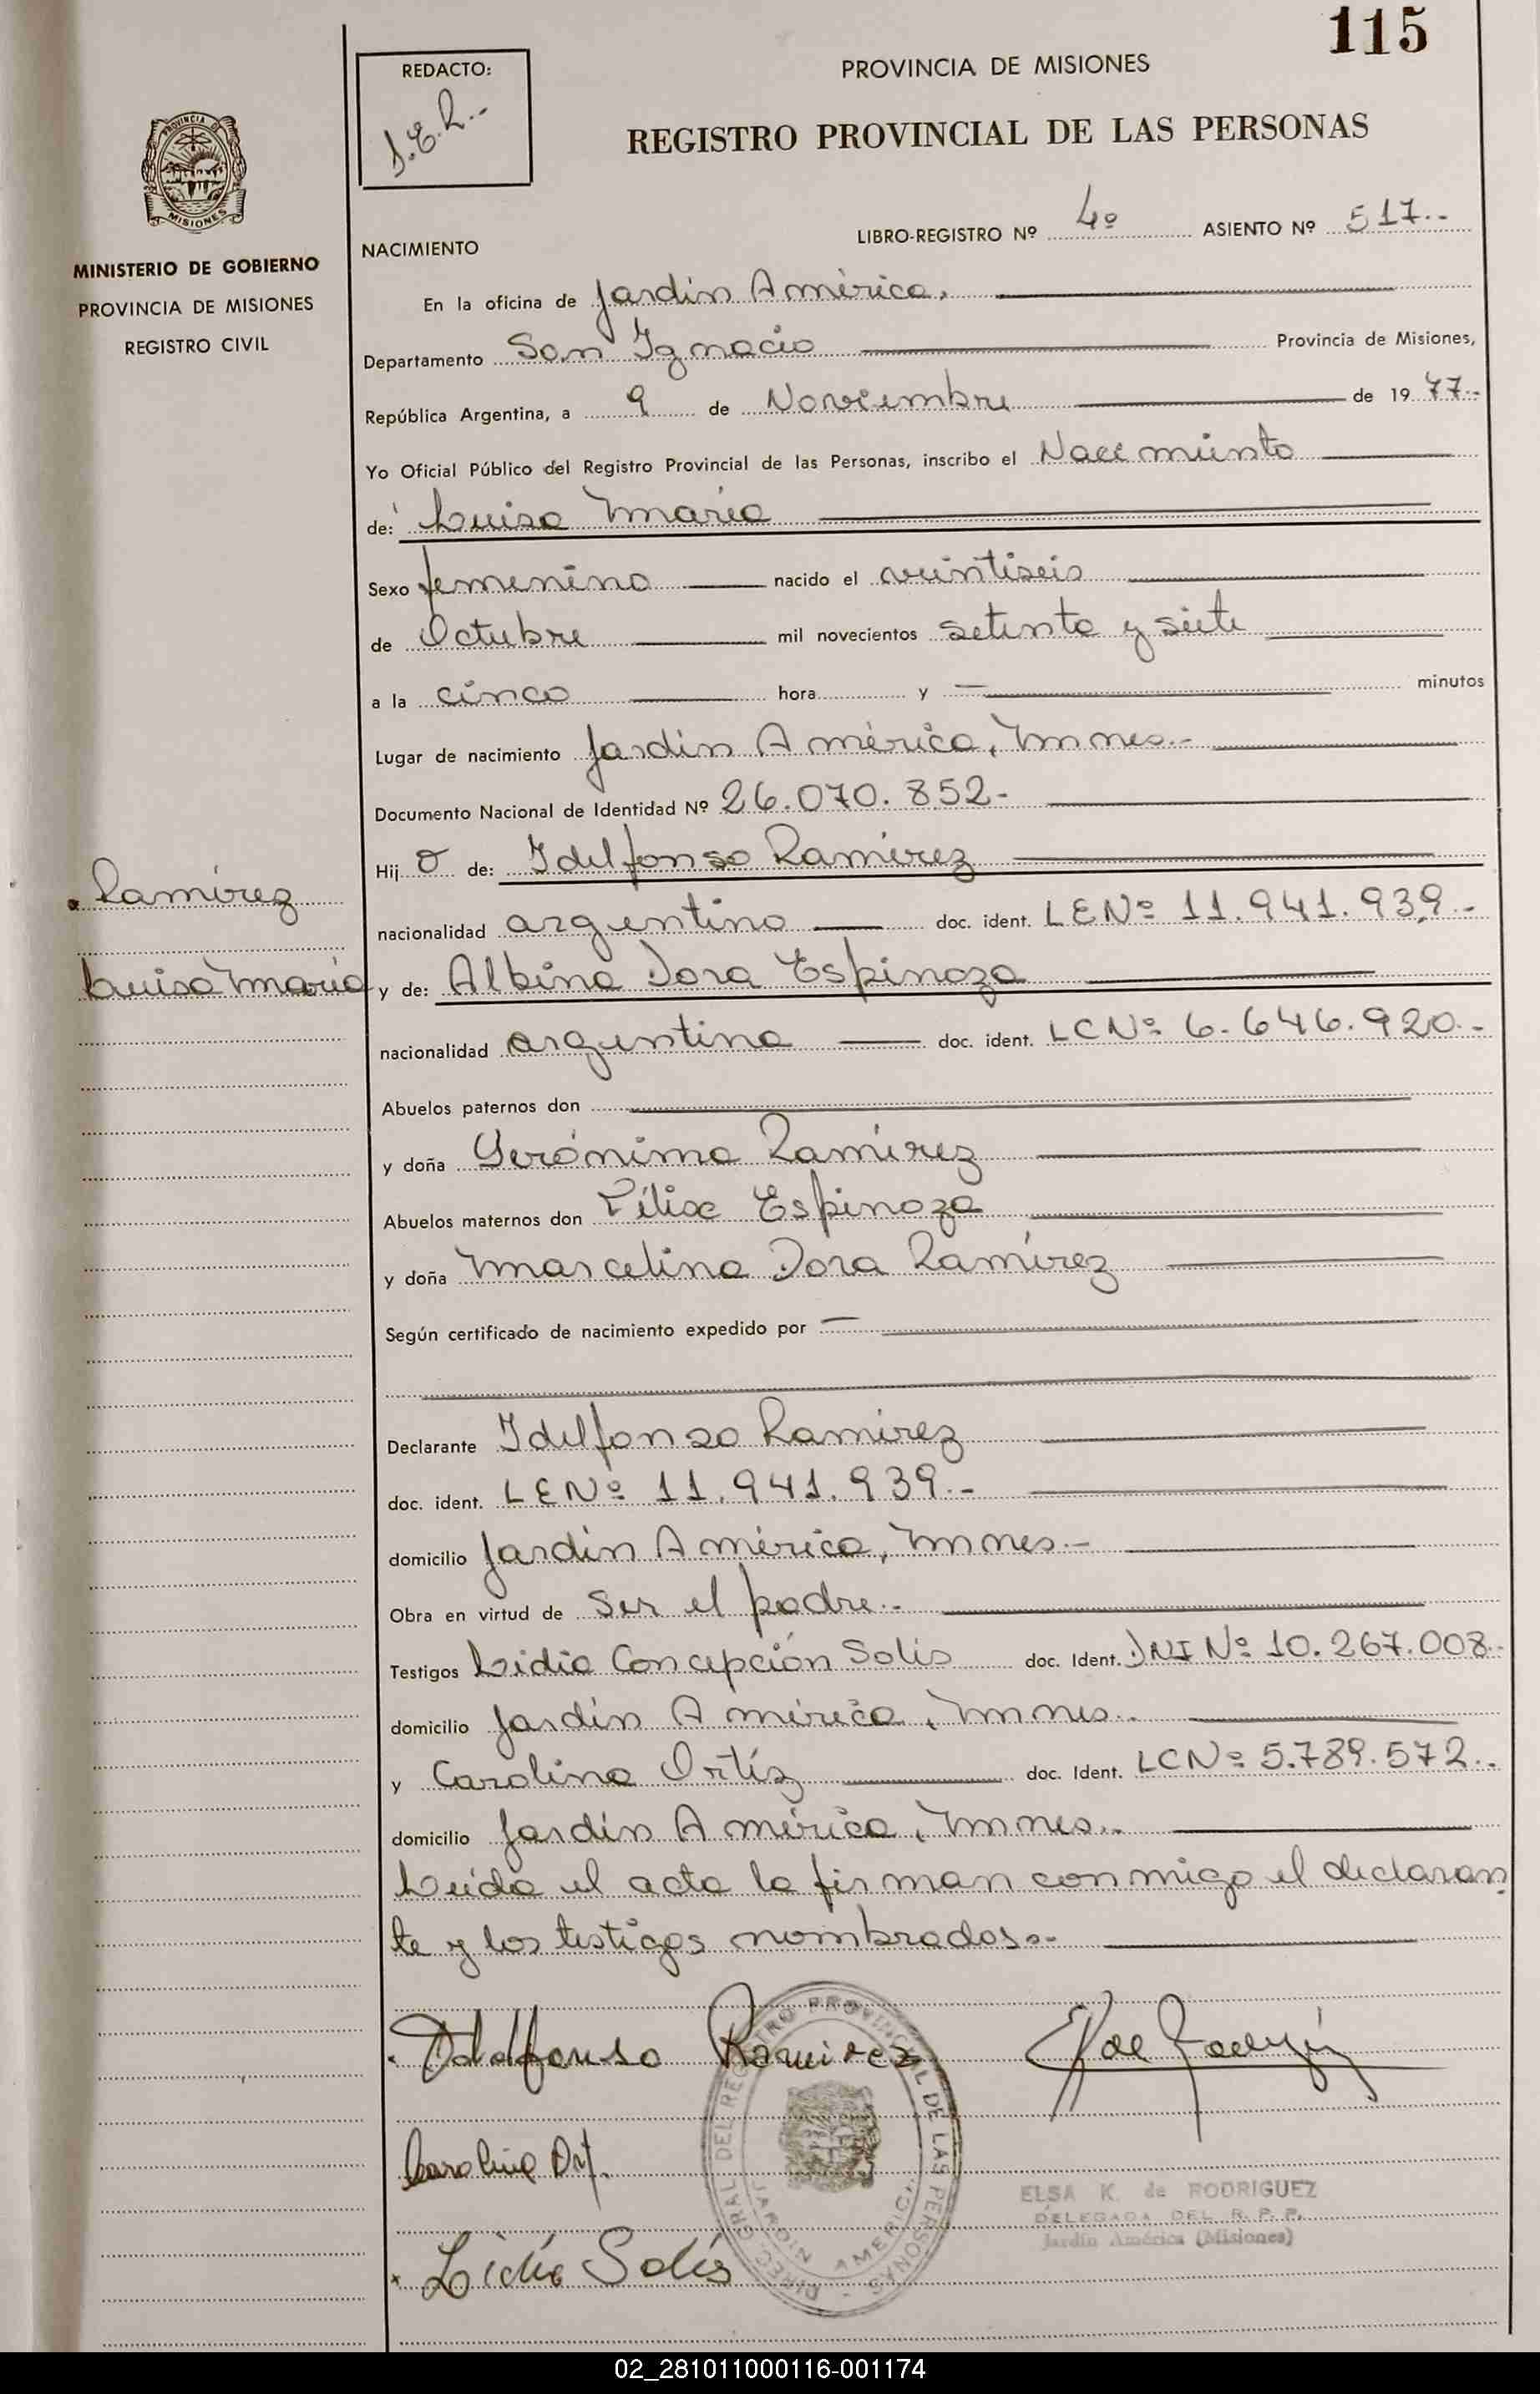 115
REDACTO:
J.E.R.-
PROVINCIA DE MISIONES
REGISTRO PROVINCIAL DE LAS PERSONAS
PROVINCIA D
MISIONES
MINISTERIO DE GOBIERNO
PROVINCIA DE MISIONES
REGISTRO CIVIL
LIBRO-REGISTRO Nº 4º ASIENTO Nº 517.-
NACIMIENTO
En la oficina de Jardín América,
Departamento San Ignacio Provincia de Misiones,
República Argentina, a 9 de Noviembre de 19 77.-
Yo Oficial Público del Registro Provincial de las Personas, inscribo el Nacimiento
de: Luisa María
Sexo femenino nacido el veintiseis
de Octubre mil novecientos setenta y siete
a la cinco hora y — minutos
Lugar de nacimiento Jardín América, Mnes.-
Documento Nacional de Identidad Nº 26.070.852-
Hij a de: Idelfonso Ramírez
Ramírez
nacionalidad argentina doc. ident. LENº 11.941.939.-
Luisa María
y de: Albina Dora Espinoza
nacionalidad argentina doc. ident. LCNº 6.646.920.-
Abuelos paternos don
y doña Gerónima Ramírez
Abuelos maternos don Félix Espinoza
y doña Marcelina Dora Ramírez
Según certificado de nacimiento expedido por —
Declarante Idelfonso Ramírez
doc. ident. LENº 11.941.939.-
domicilio Jardín América, Mnes.-
Obra en virtud de ser el padre.-
Testigos Lidia Concepción Solis doc. Ident. DNI Nº 10.267.008.-
domicilio Jardín América, Mnes.-
y Carolina Ortíz doc. Ident. LCNº 5.789.572.-
domicilio Jardín América, Mnes.-
Leída el acta la firman conmigo el declaran
te y los testigos nombrados.-
Idelfonso Ramirez
Carolina Ort.
Lidia Solís
DIREC. GRAL DEL REGISTRO PROVINCIAL DE LAS PERSONAS
JARDIN AMERICA
ELSA K. de RODRIGUEZ
DELEGADA DEL R. P. P.
Jardín América (Misiones)
02_281011000116-001174